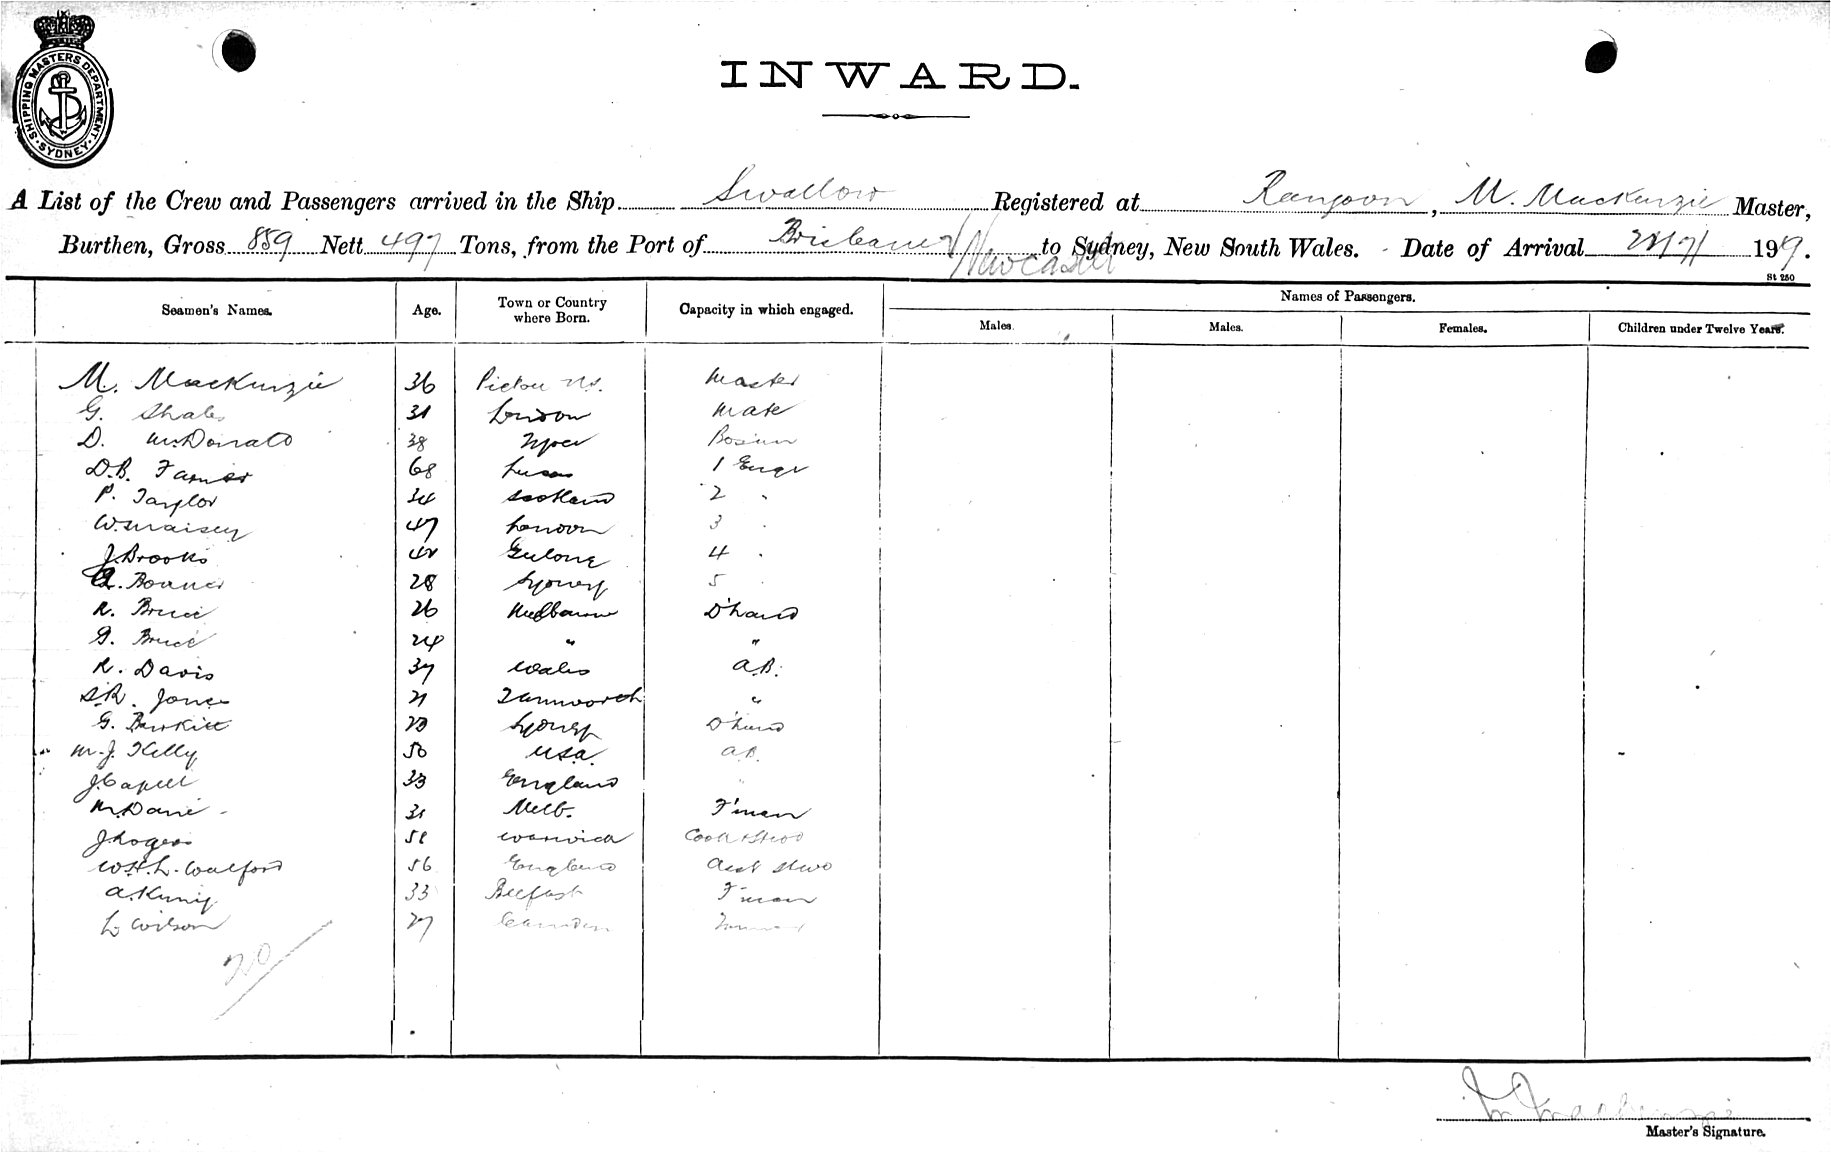 SHIPPING MASTERS DEPARTMENT. SYDNEY.
INWARD.
A List of the Crew and Passengers arrived in the Ship Swallow Registered at Rangoon, M. MacKenzie Master,
Burthen, Gross 859 Nett 497 Tons, from the Port of Brisbane / Newcastle to Sydney, New South Wales. Date of Arrival 1919.
St 280
Seamen's Names. Age. Town or Country where Born. Capacity in which engaged. Names of Passengers.
Males. Males. Females. Children under Twelve Years.
M. MacKenzie 36 Pictou N.S. Master
G. 31 London Mate
D. McDonald 38 Bosun
D.B. 68 1 Engr
P. Taylor 34 Scotland 2 "
W. 47 London 3 "
J. Brooks Geelong 4 "
28 Sydney 5 "
R. Bruce 26 Melbourne D'hand
G. Bruce 24 " "
R. Davis 37 Wales A.B.
S.R. Jones 21 Tamworth "
G. Burkitt Sydney D'hand
M.J. Kelly 50 U.S.A. A.B.
J. Capell 33 England "
M. 31 Melb. F'man
J. Warwick Cook & Stwd
W.H.L. Walford 56 England Asst Stwd
A. 33 Belfast F'man
L. Wilson 27 Camden
20
M. Mackenzie
Master's Signature.